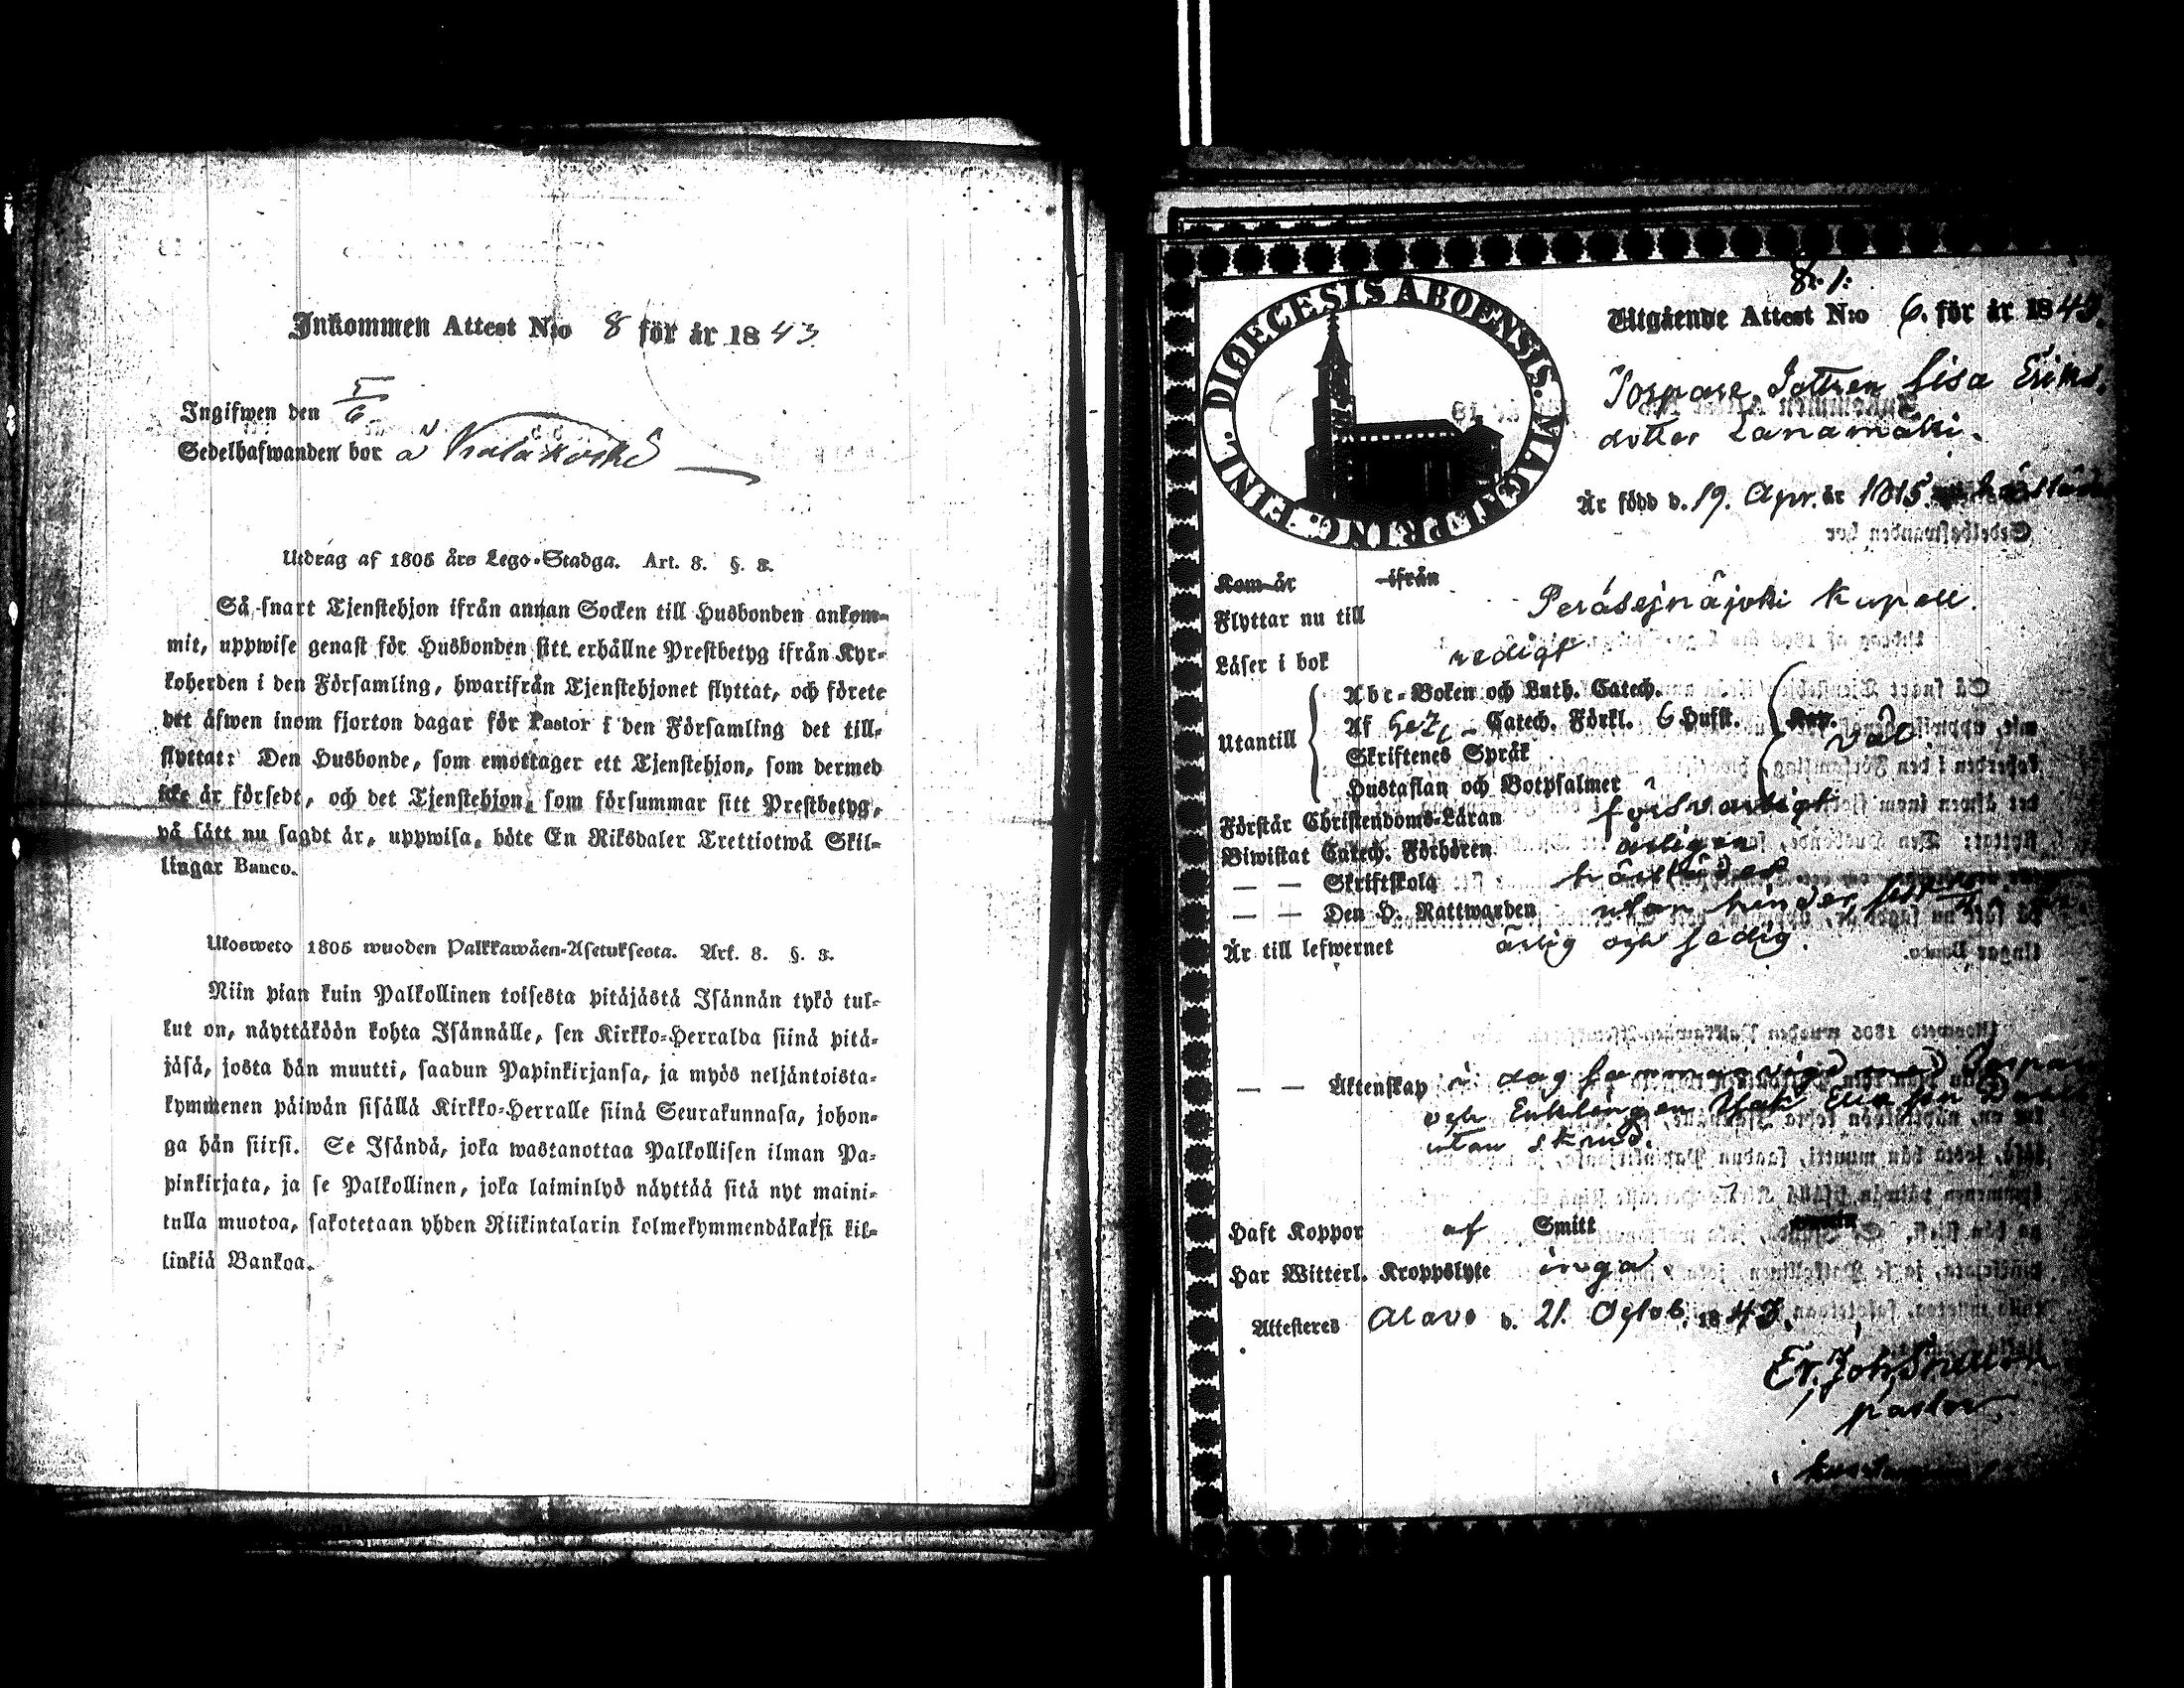 Inkommen Attest N:o 8 för år 1843
Ingifwen den 5/6
Sedelhafwanden bor å Kaläkoski
Utdrag af 1805 års Lego-Stadga. Art. 8. §. 3.
Så snart Tjenstehjon ifrån annan Socken till Husbonden ankom-
mit, uppwise genast för Husbonden sitt erhållne Prestbetyg ifrån Kyr-
koherden i den Församling, hwarifrån Tjenstehjonet flyttat, och förete
det äfwen inom fjorton dagar för Pastor i den Församling det till-
flyttat: Den Husbonde, som emottager ett Tjenstehjon, som dermed
icke är försedt, och det Tjenstehjon, som försummar sitt Prestbetyg,
på sätt nu sagdt är, uppwisa, böte En Riksdaler Trettiotwå Skil-
lingar Banco.
Ulosweto 1805 wuoden Palkkawäen-Asetuksesta. Art. 8. §. 3.
Niin pian kuin Palkollinen toisesta pitäjästä Isännän tykö tul-
lut on, näyttäköön kohta Isännälle, sen Kirkko-Herralda siinä pitä-
jäsä, josta hän muutti, saadun Papinkirjansa, ja myös neljäntoista-
kymmenen päiwän sisällä Kirkko-Herralle siinä Seurakunnasa, johon-
ga hän siirsi. Se Isändä, joka wastanottaa Palkollisen ilman Pa-
pinkirjata, ja se Palkollinen, joka laiminlyö näyttää sitä nyt maini-
tulla muotoa, sakotetaan yhden Riikintalarin kolmekymmendäkaksi kil-
linkiä Bankoa.
DIOECESIS ABOENSIS. MAGN. PRINC. FENL.
Utgående Attest N:o 6. för år 1843.
Torpare Dottren Lisa Eriks-
dotter Lanamäki.
Är född d. 19. Apr. år 1815.
Kom år ifrån
Flyttar nu till Peräsejnäjoki Kapell.
Läser i bok redigt
Utantill
Abc-Boken och Luth. Catech.
Af Catech. Förkl. 6 Hufst. Kap.
Skriftenes Språk väl
Hustaflan och Botpsalmer
Förstår Christendoms-Läran försvarligt
Biwistat Catech. Förhören årligen
— — Skriftskola härstädes
— — Den H. Nattwarden utan hinder
Är till lefwernet ärlig och sedig.
— — Äktenskap i dag
och Enklingen
utan
Haft Koppor af Smitt
Har Witterl. Kroppslyte inga.
Attesteres Alavo d. 21. Octob. 1843.
pastor